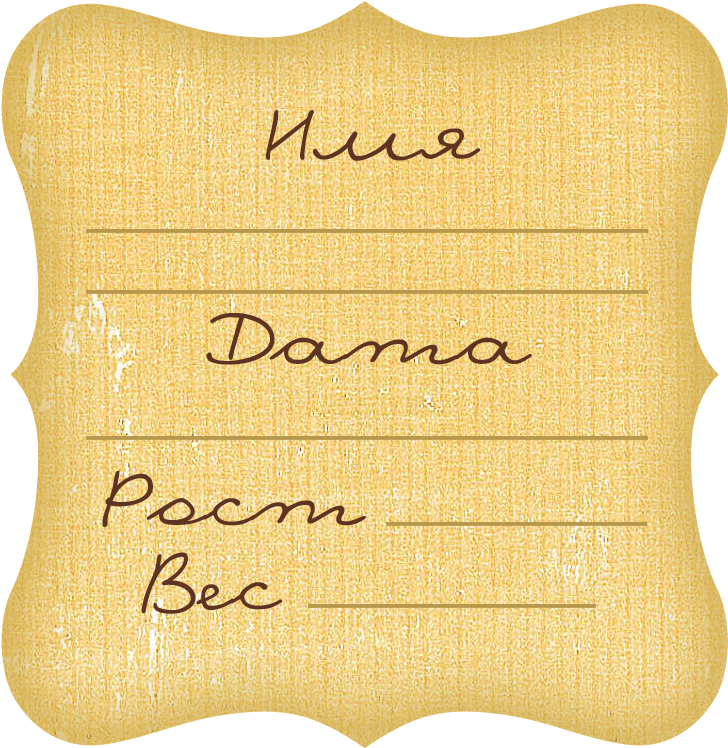 Имя
Дата
Рост
Вес